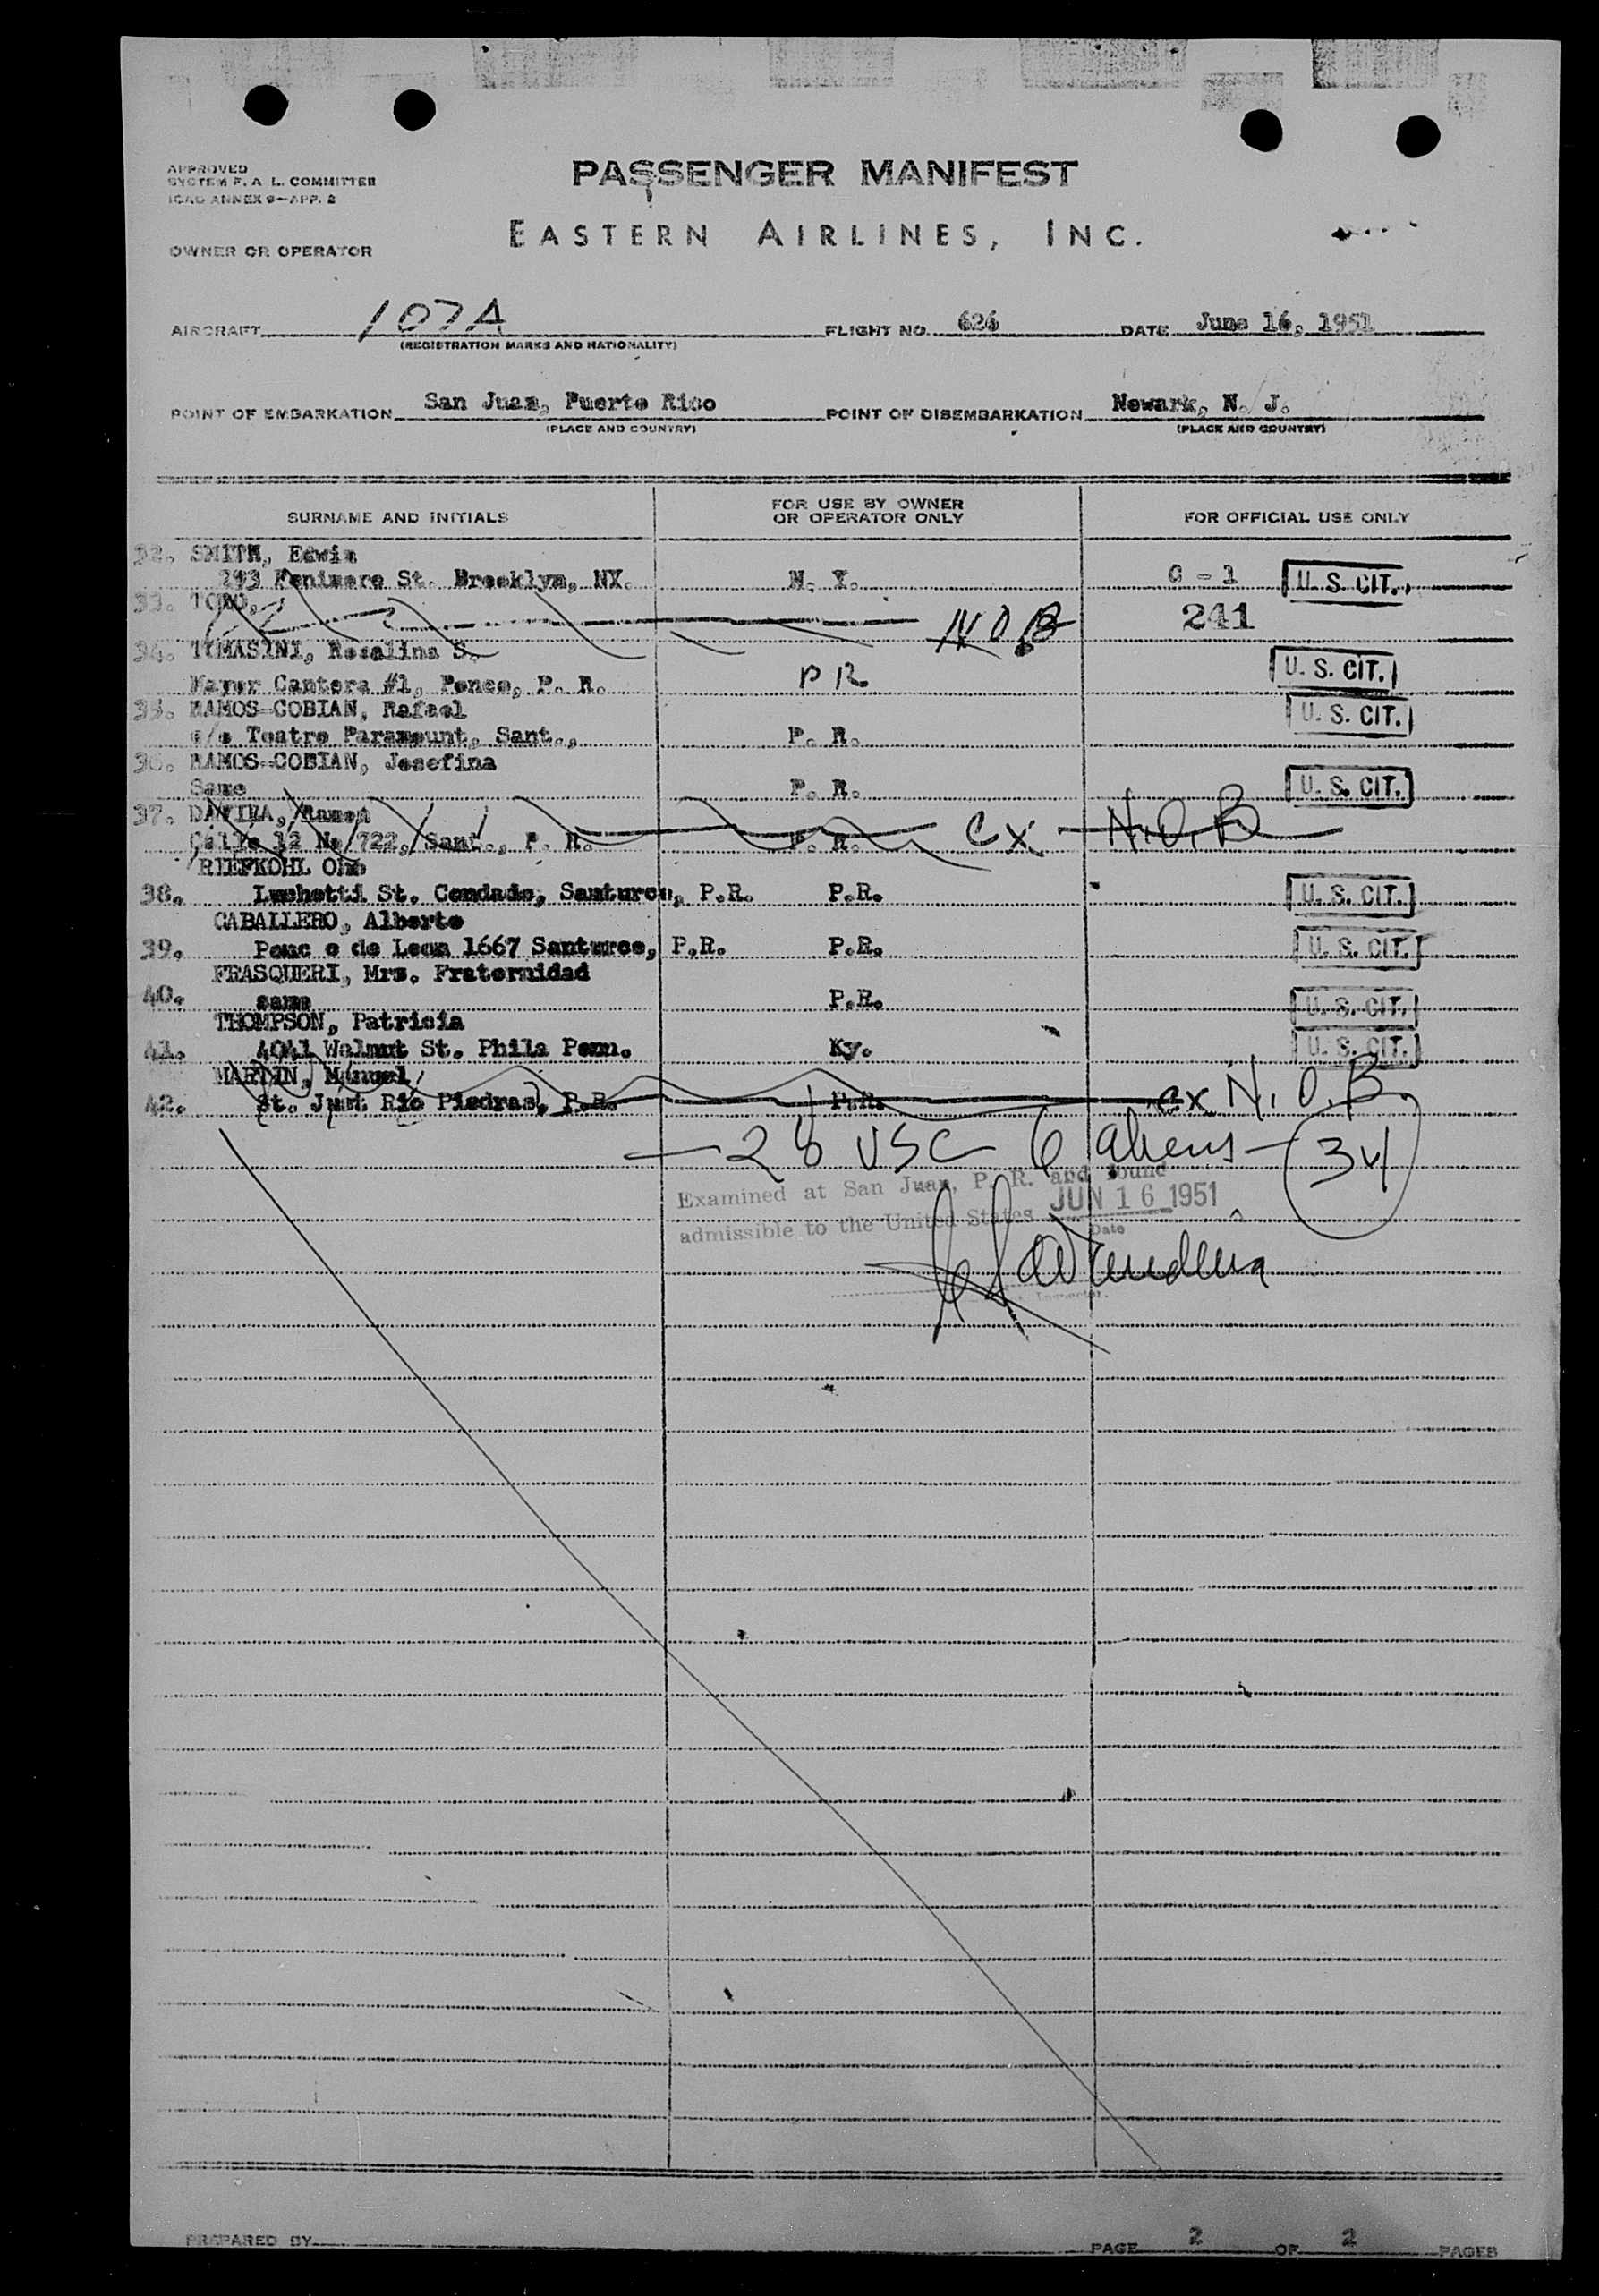 APPROVED
SYSTEM F. A. L. COMMITTEE
ICAO ANNEX 9—APP. 2
PASSENGER MANIFEST
EASTERN AIRLINES, INC.
OWNER OR OPERATOR
AIRCRAFT 107A FLIGHT NO. 626 DATE June 16, 1951
(REGISTRATION MARKS AND NATIONALITY)
POINT OF EMBARKATION San Juan, Puerto Rico POINT OF DISEMBARKATION Newark, N. J.
(PLACE AND COUNTRY) (PLACE AND COUNTRY)
SURNAME AND INITIALS FOR USE BY OWNER OR OPERATOR ONLY FOR OFFICIAL USE ONLY
32. SMITH, Edwin
293 Fenimore St. Brooklyn, NY. N. Y. C - 1 U. S. CIT.
33. TORO, NOB 241
34. TOMASINI, Rosalina S.
Mayor Cantera #1, Ponce, P. R. PR U. S. CIT.
35. RAMOS-COBIAN, Rafael U. S. CIT.
c/o Teatro Paramount, Sant., P. R.
36. RAMOS-COBIAN, Josefina
Same P. R. U. S. CIT.
37. DAVILA, Ramon
Calle 12 No 722, Sant., P. R. P. R. CX N.O.B
RIEFKOHL
38. Luchetti St. Condado, Santurce, P.R. P.R. U. S. CIT.
CABALLERO, Alberto
39. Ponc e de Leon 1667 Santurce, P.R. P.R. U. S. CIT.
FRASQUERI, Mrs. Fraternidad
40. same P.R. U. S. CIT.
THOMPSON, Patricia
41. 4041 Walnut St. Phila Penn. Ky. U. S. CIT.
MARTIN, Manuel
42. St. Just Rio Piedras, P.R. P.R. cx N.O.B.
—28 USC 6 aliens— 34
Examined at San Juan, P. R. and found
admissible to the United States JUN 16 1951
Date
Inspector.
PREPARED BY PAGE 2 OF 2 PAGES